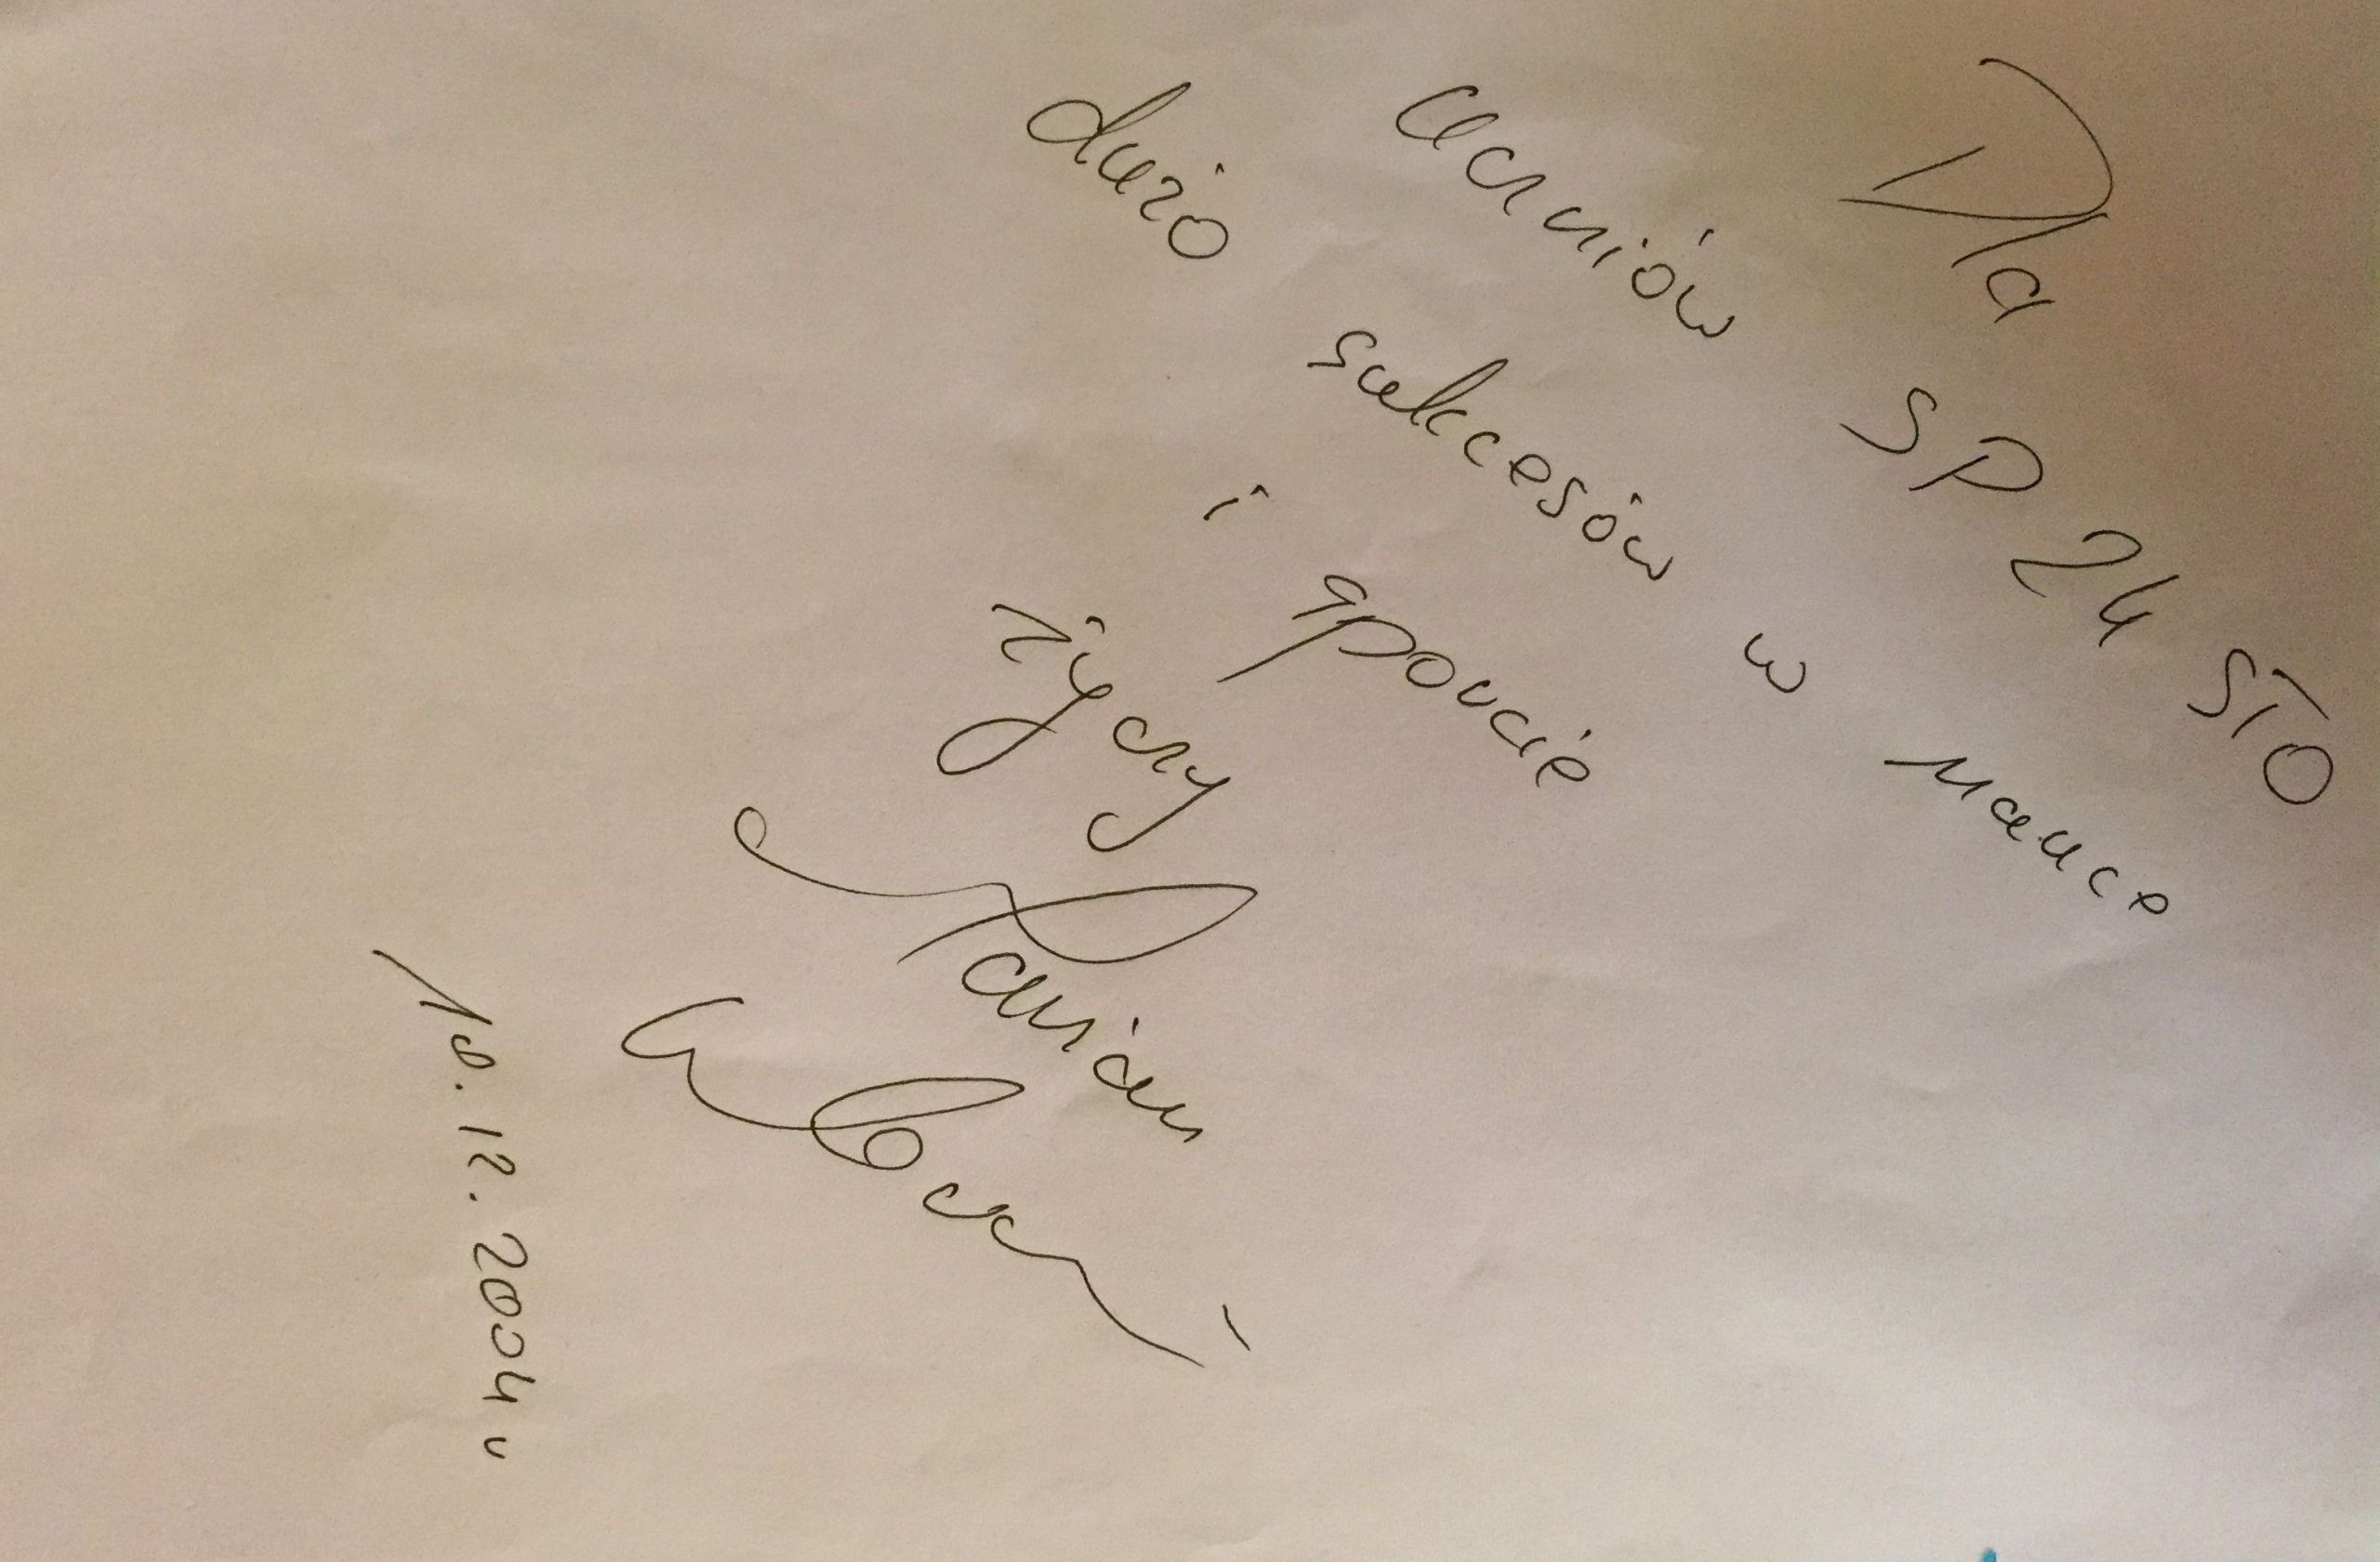 Dla
uczniów SP 24 STO
dużo sukcesów w nauce
i sporcie
życzy
Marian
18.12.2004 r